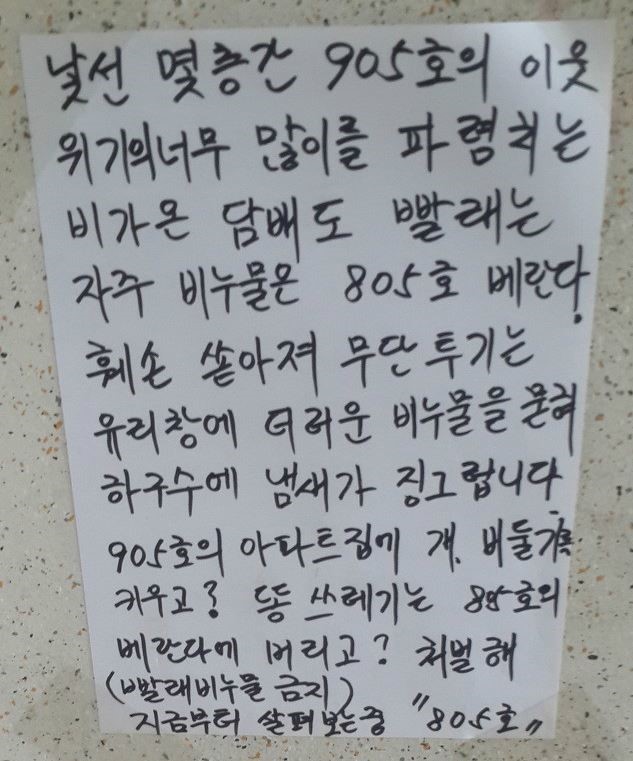 낯선 몇층간 905호의 이웃
위기의너무 많이를 파렴치는
비가온 담배도 빨래는
자주 비누물은 805호 베란다.
훼손 쏟아져 무단투기는
유리창에 더러운 비누물을 묻혀
하구수에 냄새가 징그럽니다
905호의 아파트집에 개. 비둘기똑
키우고? 똥 쓰레기는 805호의
베란다에 버리고? 처벌해
(빨래비누물 금지)
지금부터 살펴보는중 "805호"